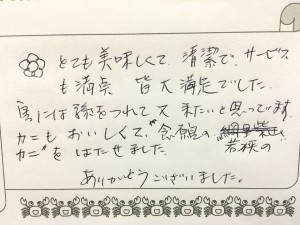 とても美味しくて、清潔で、サービス
も満点 皆大満足でした。
には孫をつれて又来たいと思ってます。
カニもおいしくて、"念願の
若狭の
カニ"をはたせました。
ありがとうございました。